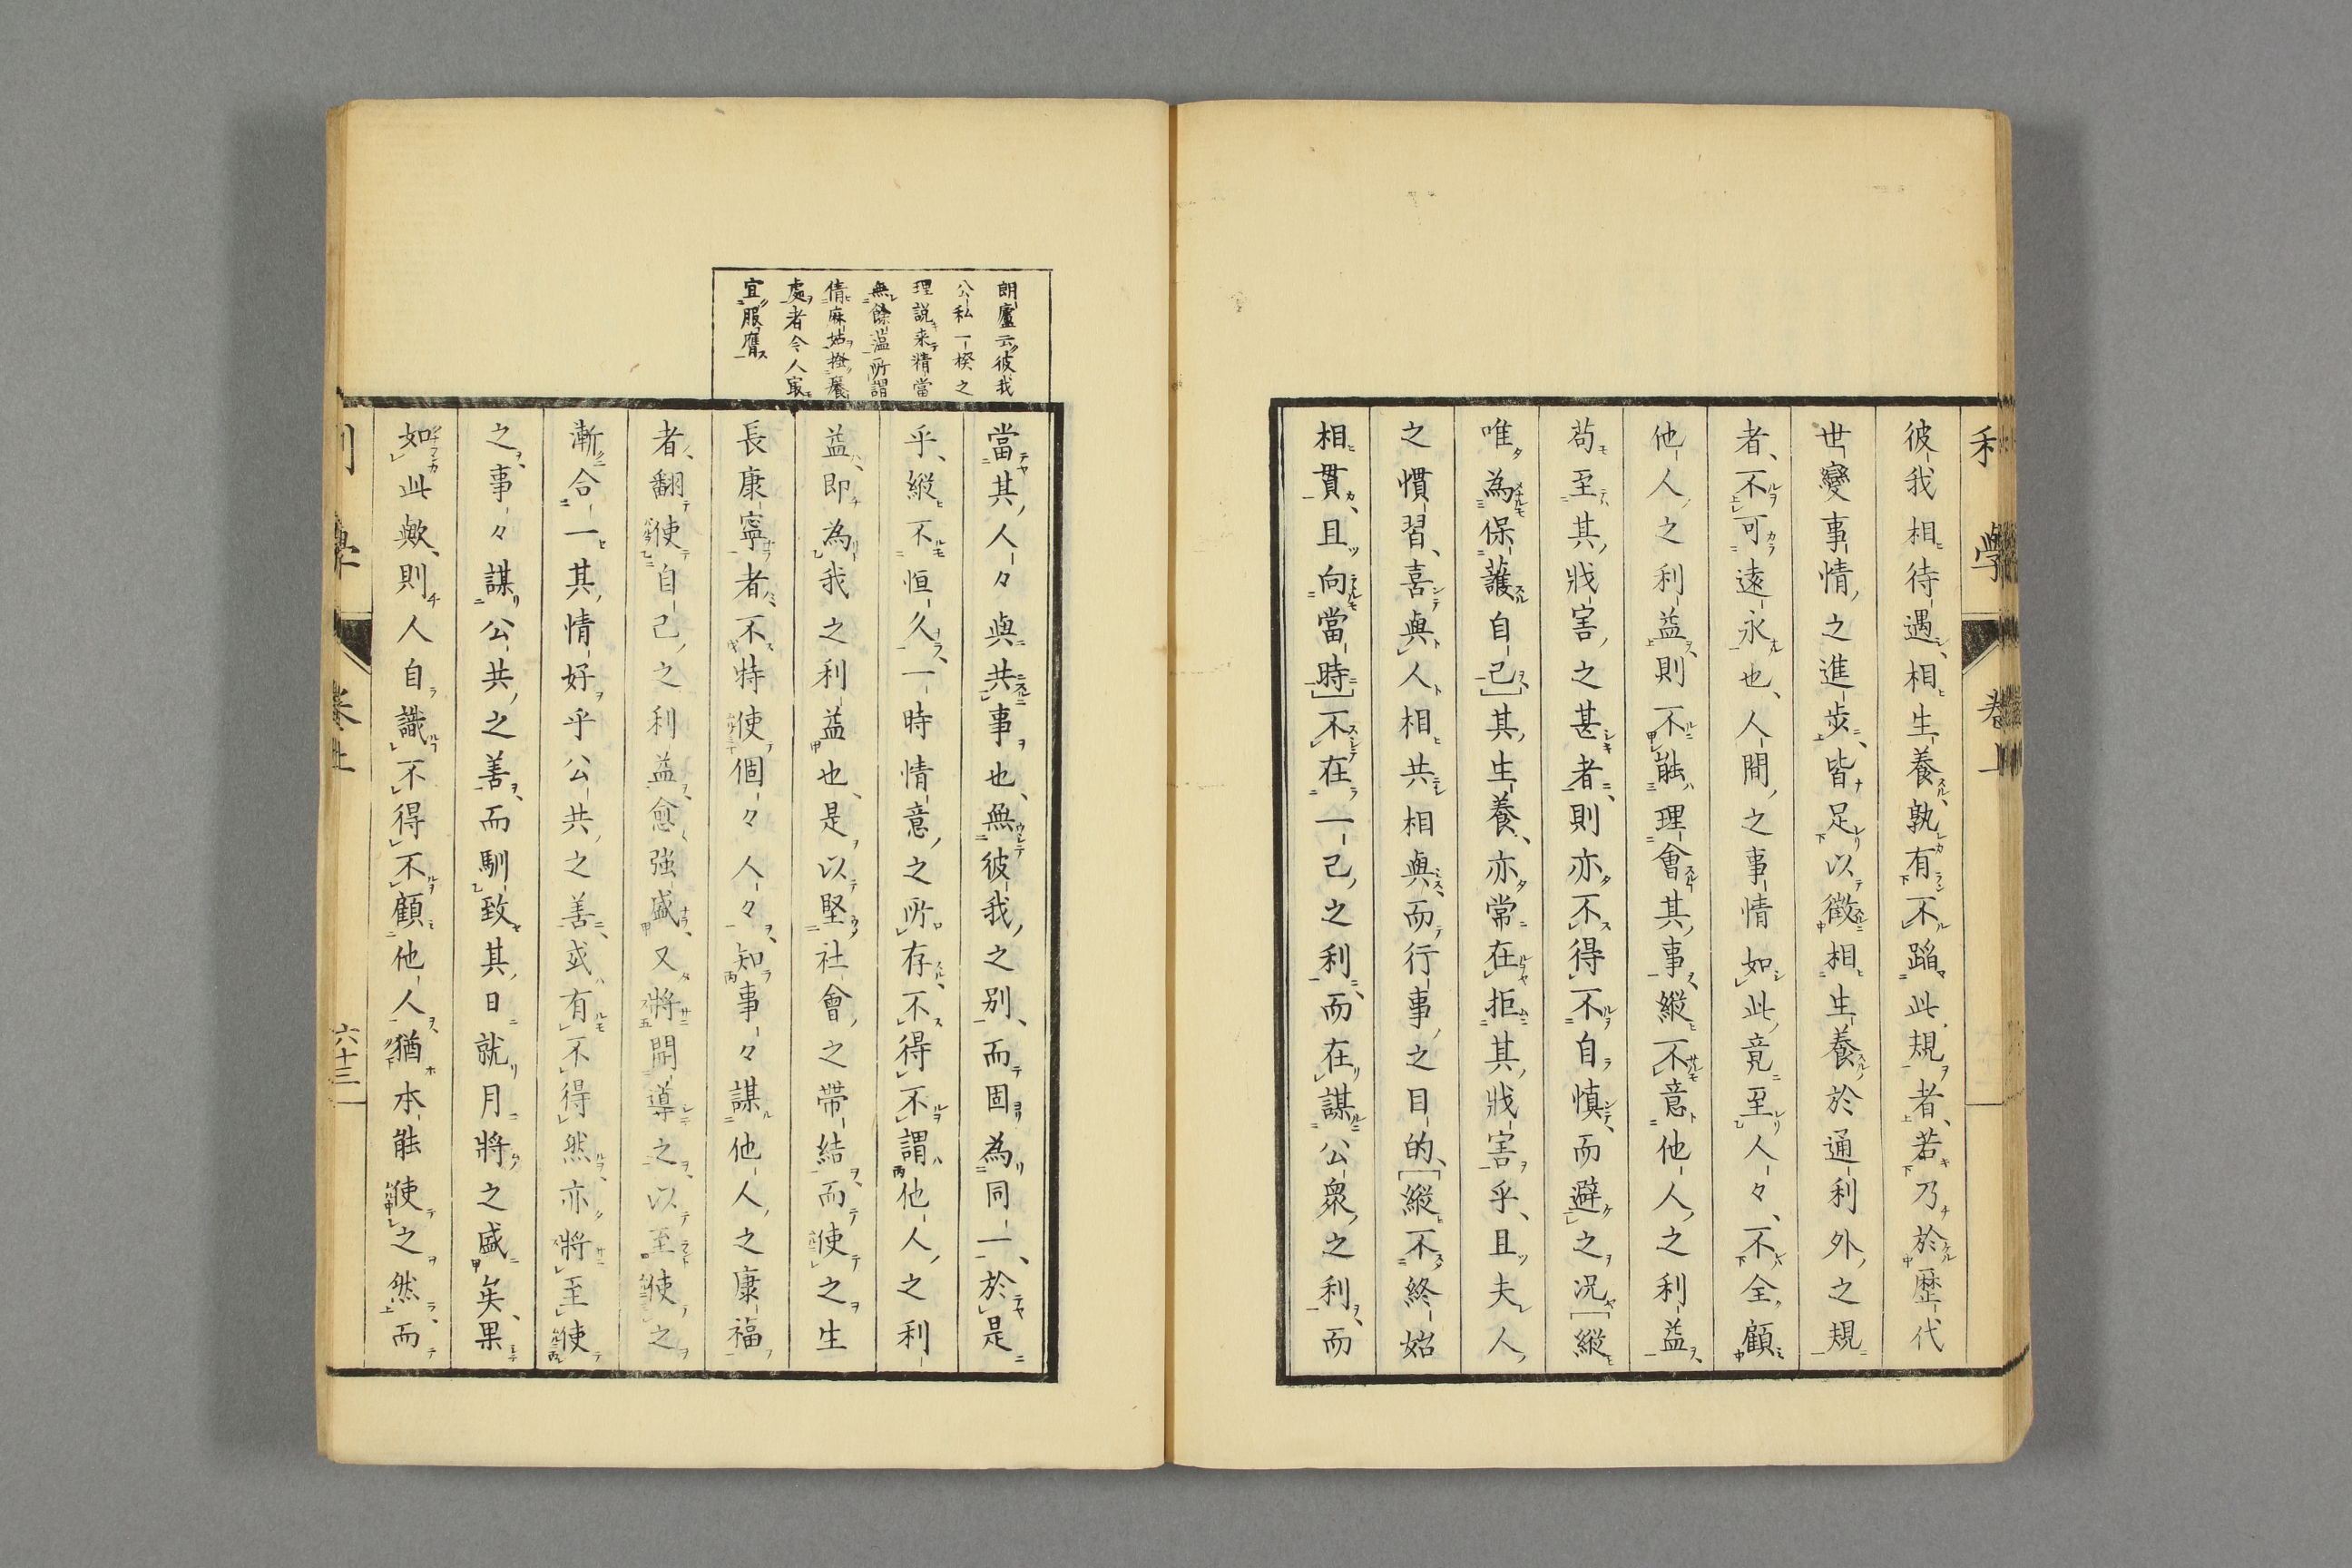 利學 卷上
彼我相待遇相生養孰有不蹈此規者若乃於歷代
世變事情之進步皆足以徵相生養於通利外之規
者不可遠永也人間之事情如此竟至人々不全顧
他人之利益則不能理會其事縱不意他人之利益
苟至其戕害之甚者則亦不得不自慎而避之况縱
唯為保護自己其生養亦常在拒其戕害乎且夫人
之慣習喜與人相共相與而行事之目的縱不終始
相貫且向當時不在一己之利而在謀公衆之利而
朗廬云彼我
公私一揆之
理説来精當
無餘温所謂
倩麻姑搔癢
處者令人冣
宜服膺
當其人々與共事也無彼我之别而固為同一於是
乎縱不恒久一時情意之所存不得不謂他人之利
益即為我之利益也是以堅社會之帶結而使之生
長康寧者不特使個々人々知事々謀他人之康福
者翻使自己之利益愈強盛又將開導之以至使之
漸合一其情好乎公共之善或有不得然亦將至使
之事々謀公共之善而馴致其日就月將之盛矣果
如此歟則人自識不得不顧他人猶本能使之然而
利學 卷上 六十三